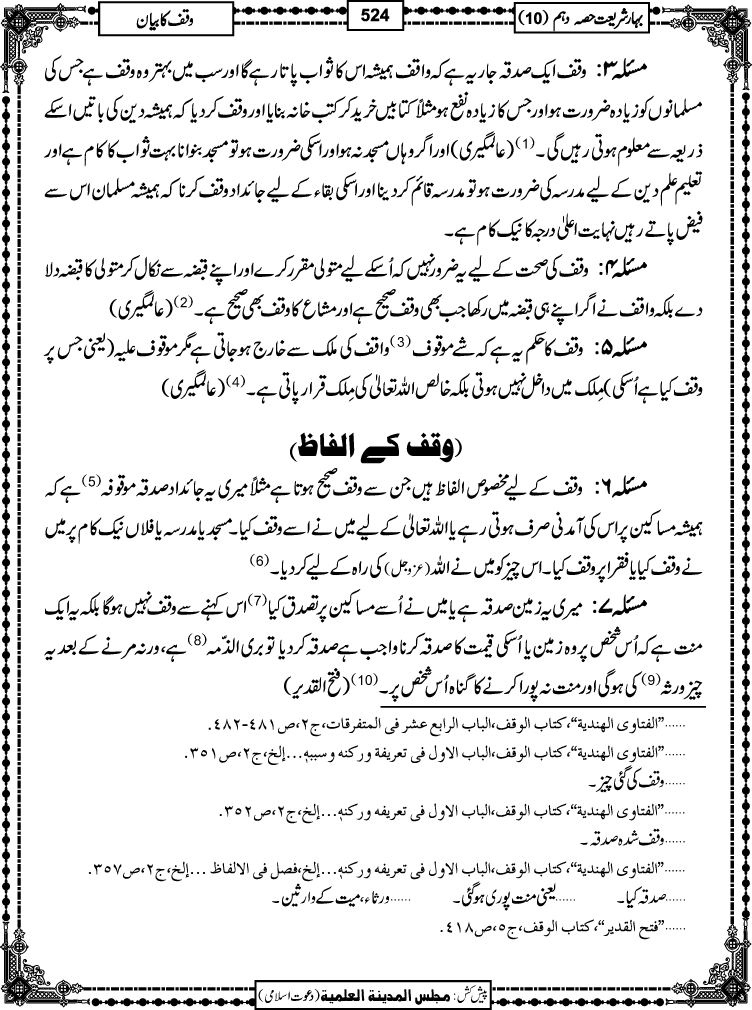 بہارِ شریعت حصہ دہم (10)
524
وقف کا بیان
مسئلہ ۳: وقف ایک صدقہ جاریہ ہے کہ واقف ہمیشہ اس کا ثواب پاتا رہے گا اور سب میں بہتر وہ وقف ہے جس کی
مسلمانوں کو زیادہ ضرورت ہو اور جس کا زیادہ نفع ہو مثلاً کتابیں خرید کر کتب خانہ بنایا اور وقف کر دیا کہ ہمیشہ دین کی باتیں اسکے
ذریعہ سے معلوم ہوتی رہیں گی۔(1) (عالمگیری) اور اگر وہاں مسجد نہ ہو اور اسکی ضرورت ہو تو مسجد بنوانا بہت ثواب کا کام ہے اور
تعلیم علم دین کے لیے مدرسہ کی ضرورت ہو تو مدرسہ قائم کر دینا اور اسکی بقاء کے لیے جائداد وقف کرنا کہ ہمیشہ مسلمان اس سے
فیض پاتے رہیں نہایت اعلیٰ درجہ کا نیک کام ہے۔
مسئلہ ۴: وقف کی صحت کے لیے یہ ضرور نہیں کہ اُسکے لیے متولی مقرر کرے اور اپنے قبضہ سے نکال کر متولی کا قبضہ دلا
دے بلکہ واقف نے اگر اپنے ہی قبضہ میں رکھا جب بھی وقف صحیح ہے اور مشاع کا وقف بھی صحیح ہے۔(2) (عالمگیری)
مسئلہ ۵: وقف کا حکم یہ ہے کہ شے موقوف(3) واقف کی ملک سے خارج ہو جاتی ہے مگر موقوف علیہ (یعنی جس پر
وقف کیا ہے اُسکی) مِلک میں داخل نہیں ہوتی بلکہ خالص اللہ تعالیٰ کی مِلک قرار پاتی ہے۔(4) (عالمگیری)
(وقف کے الفاظ)
مسئلہ ۶: وقف کے لیے مخصوص الفاظ ہیں جن سے وقف صحیح ہوتا ہے مثلاً میری یہ جائداد صدقہ موقوفہ(5) ہے کہ
ہمیشہ مساکین پر اس کی آمدنی صرف ہوتی رہے یا اللہ تعالیٰ کے لیے میں نے اسے وقف کیا۔ مسجد یا مدرسہ یا فلاں نیک کام پر میں
نے وقف کیا یا فقرا پر وقف کیا۔ اس چیز کو میں نے اللہ (عزوجل) کی راہ کے لیے کر دیا۔(6)
مسئلہ ۷: میری یہ زمین صدقہ ہے یا میں نے اُسے مساکین پر تصدق کیا(7) اس کہنے سے وقف نہیں ہوگا بلکہ یہ ایک
منت ہے کہ اُس شخص پر وہ زمین یا اُسکی قیمت کا صدقہ کرنا واجب ہے صدقہ کر دیا تو بری الذّمہ(8) ہے، ورنہ مرنے کے بعد یہ
چیز ورثہ(9) کی ہوگی اور منت نہ پورا کرنے کا گناہ اُس شخص پر۔(10) (فتح القدیر)
......”الفتاوى الهندية“،كتاب الوقف،الباب الرابع عشر فى المتفرقات،ج٢،ص٤٨١-٤٨٢.
......”الفتاوى الهندية“،كتاب الوقف،الباب الاول فى تعريفة وركنه وسببه...إلخ،ج٢،ص٣٥١.
......وقف کی گئی چیز۔
......”الفتاوى الهندية“،كتاب الوقف،الباب الاول فى تعريفه وركنه...إلخ،ج٢،ص٣٥٢.
......وقف شدہ صدقہ۔
......”الفتاوى الهندية“،كتاب الوقف،الباب الاول فى تعريفه وركنه...إلخ،فصل فى الالفاظ ...إلخ،ج٢،ص٣٥٧.
......صدقہ کیا۔ ......یعنی منت پوری ہو گئی۔ ......ورثاء، میت کے وارثین۔
......”فتح القدير“،كتاب الوقف،ج٥،ص٤١٨.
پیش کش: مجلس المدینۃ العلمیۃ (دعوت اسلامی)